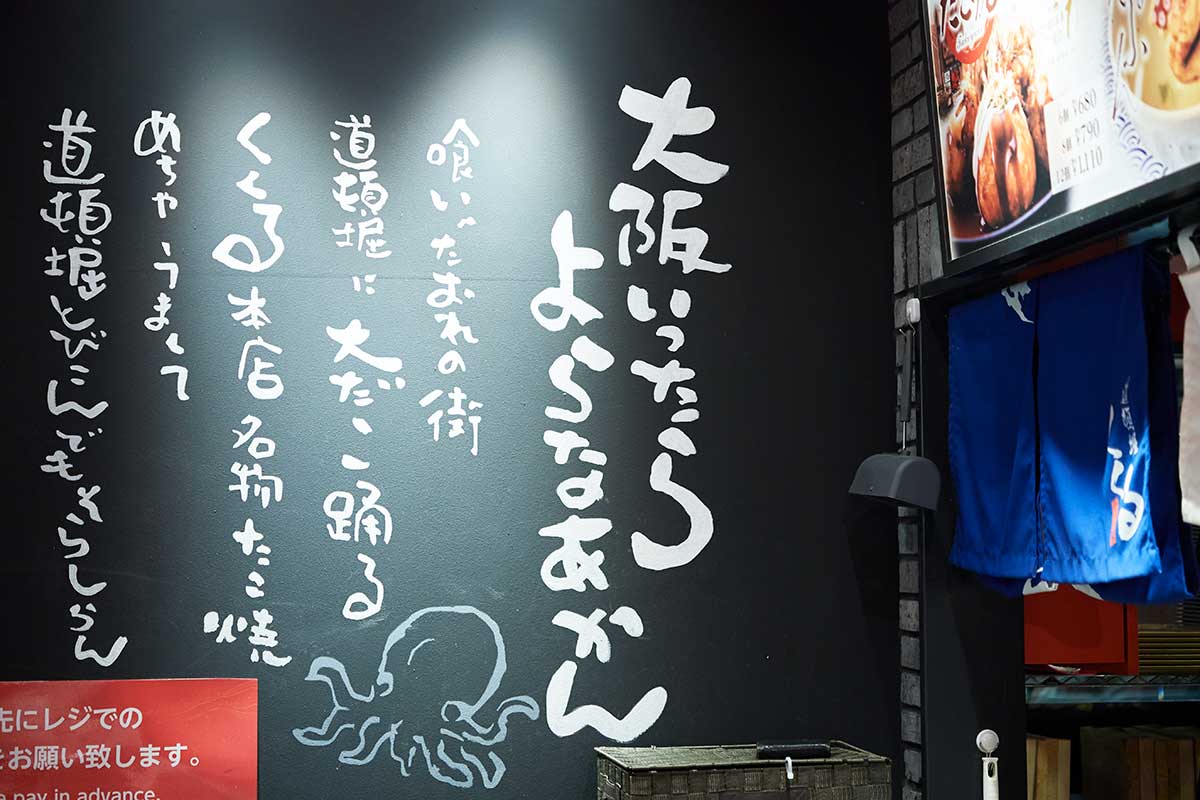 大阪いったら
よらなあかん
喰いだおれの街
道頓堀に大だこ踊る
くくる本店名物たこ焼
めちゃうまして
道頓堀とびこんでもそらしらん
6個 ¥680
8個 ¥790
12個 ¥1,110
先にレジでの
をお願い致します。
pay in advance.